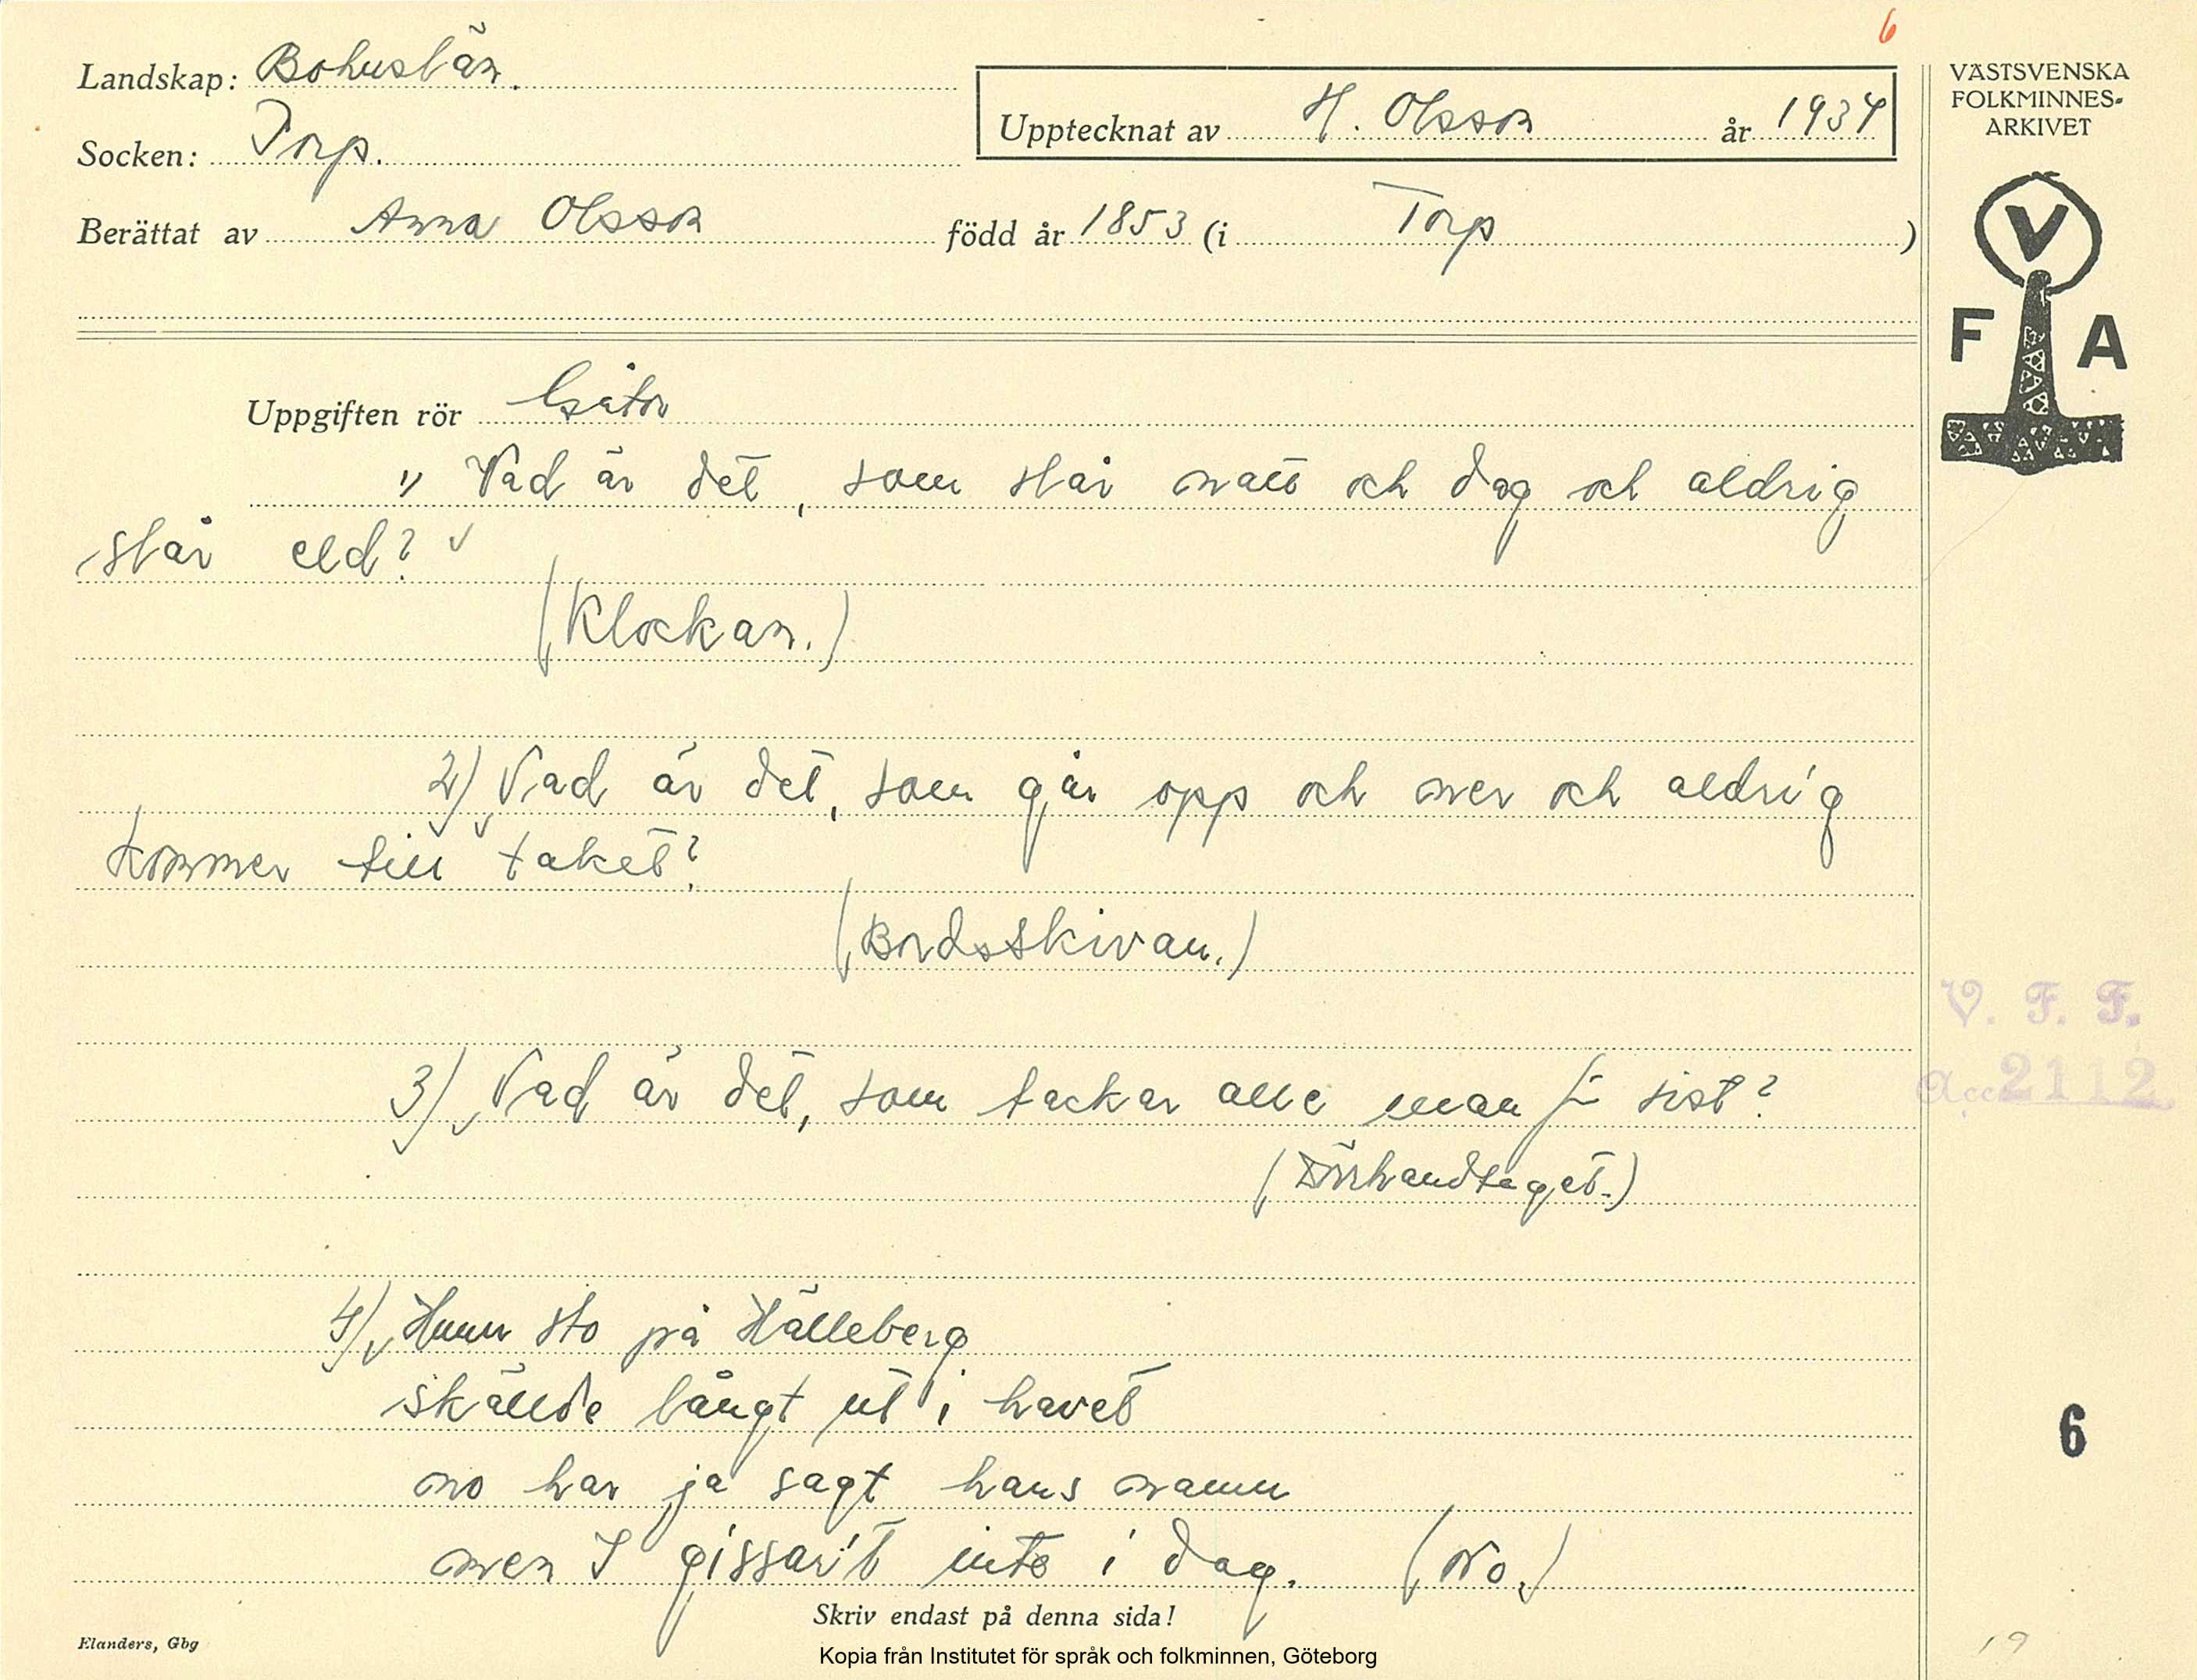 6
Landskap: Bohuslän.
Socken: Torp.
Upptecknat av H. Olsson år 1934
Berättat av Anna Olsson född år 1853 (i Torp)
VÄSTSVENSKA
FOLKMINNES-
ARKIVET
V
F A
Uppgiften rör Gåtor
1) Vad är det, som slår natt och dag och aldrig
slår eld?
(Klockan.)
2) Vad är det, som går opp och ner och aldrig
kommer till taket?
(Bordsskivan.)
3) Vad är det, som tackar alle man för sist?
(Dörrhandtaget.)
V. F. F.
Acc 2112
4) Hunn sto på Hälleberg
skällde långt ut i havet
no har ja sagt hans namn
men I gissar't inte i dag. (No.)
6
Skriv endast på denna sida!
Elanders, Gbg
Kopia från Institutet för språk och folkminnen, Göteborg
19